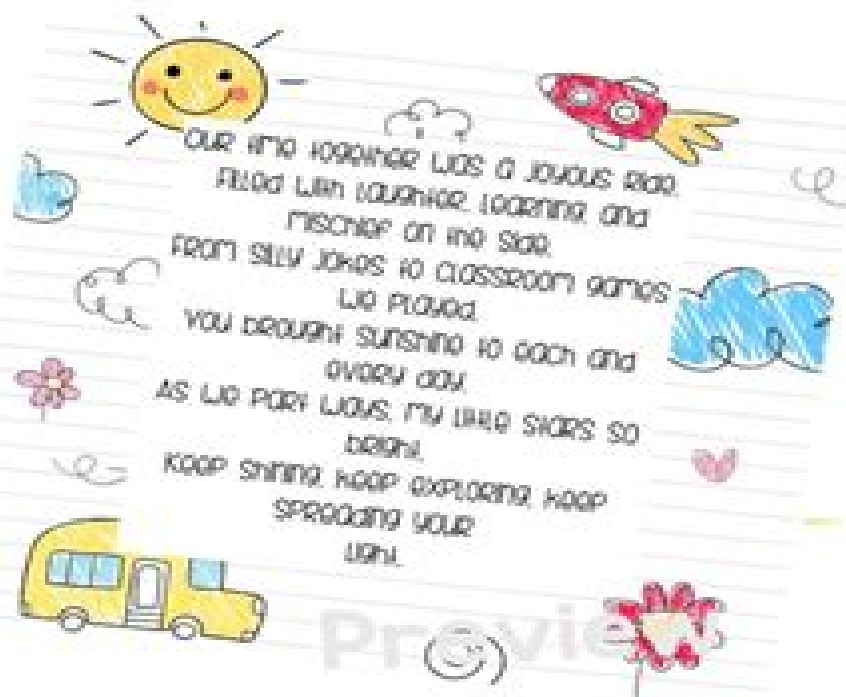 Our time together was a joyous ride,
Filled with laughter, learning, and
mischief on the side.
From silly jokes to classroom games
we played,
You brought sunshine to each and
every day.
As we part ways, my little stars so
bright,
Keep shining, keep exploring, keep
spreading your
light.
Preview